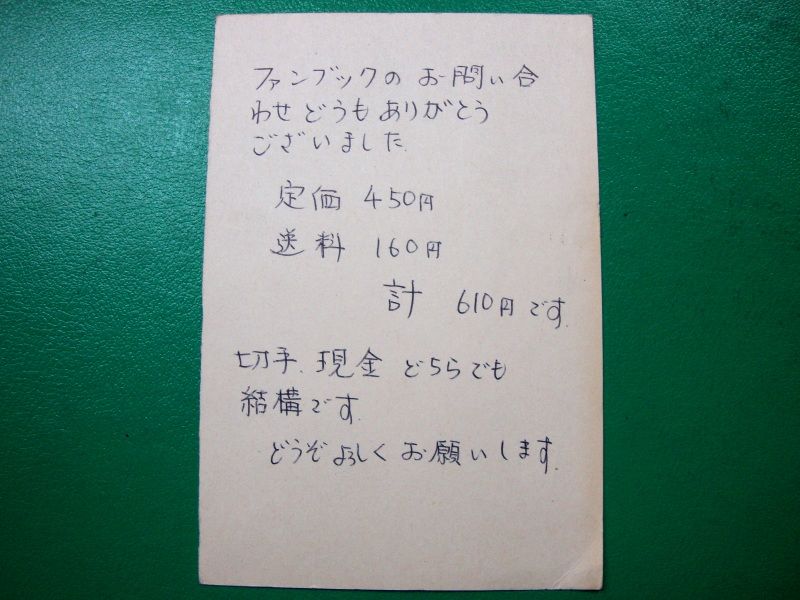 ファンブックの お問い合
わせ どうも ありがとう
ございました.
定価 450円
送料 160円
計 610円です.
切手.現金 どちらでも
結構です.
どうぞ よろしく お願いします.